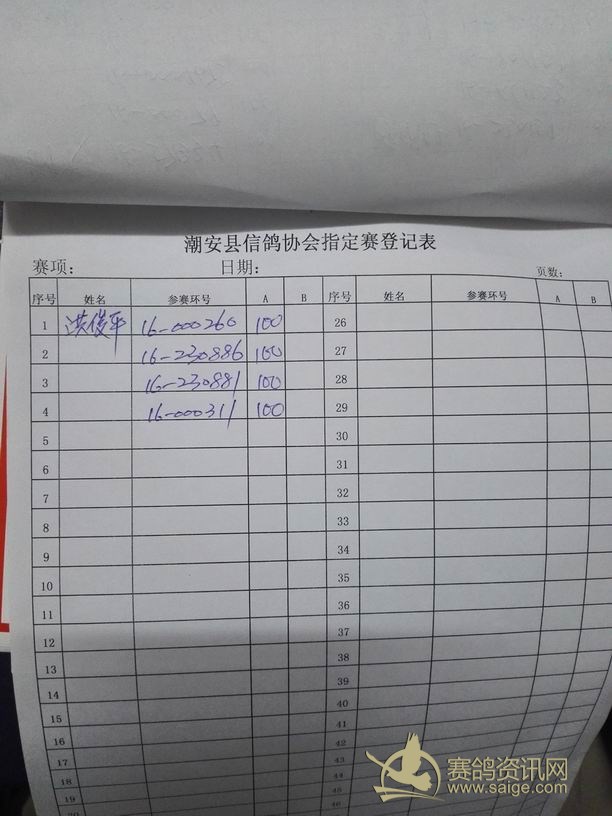 潮安县信鸽协会指定赛登记表
赛项: 日期: 页数:
序号 姓名 参赛环号 A B 序号 姓名 参赛环号 A B
1 洪俊平 16-000260 100 26
2 16-230886 100 27
3 16-230881 100 28
4 16-000311 100 29
5 30
6 31
7 32
8 33
9 34
10 35
11 36
12 37
13 38
14 39
15 40
16 41
17 42
18 43
19
赛鸽资讯网
www.saige.com